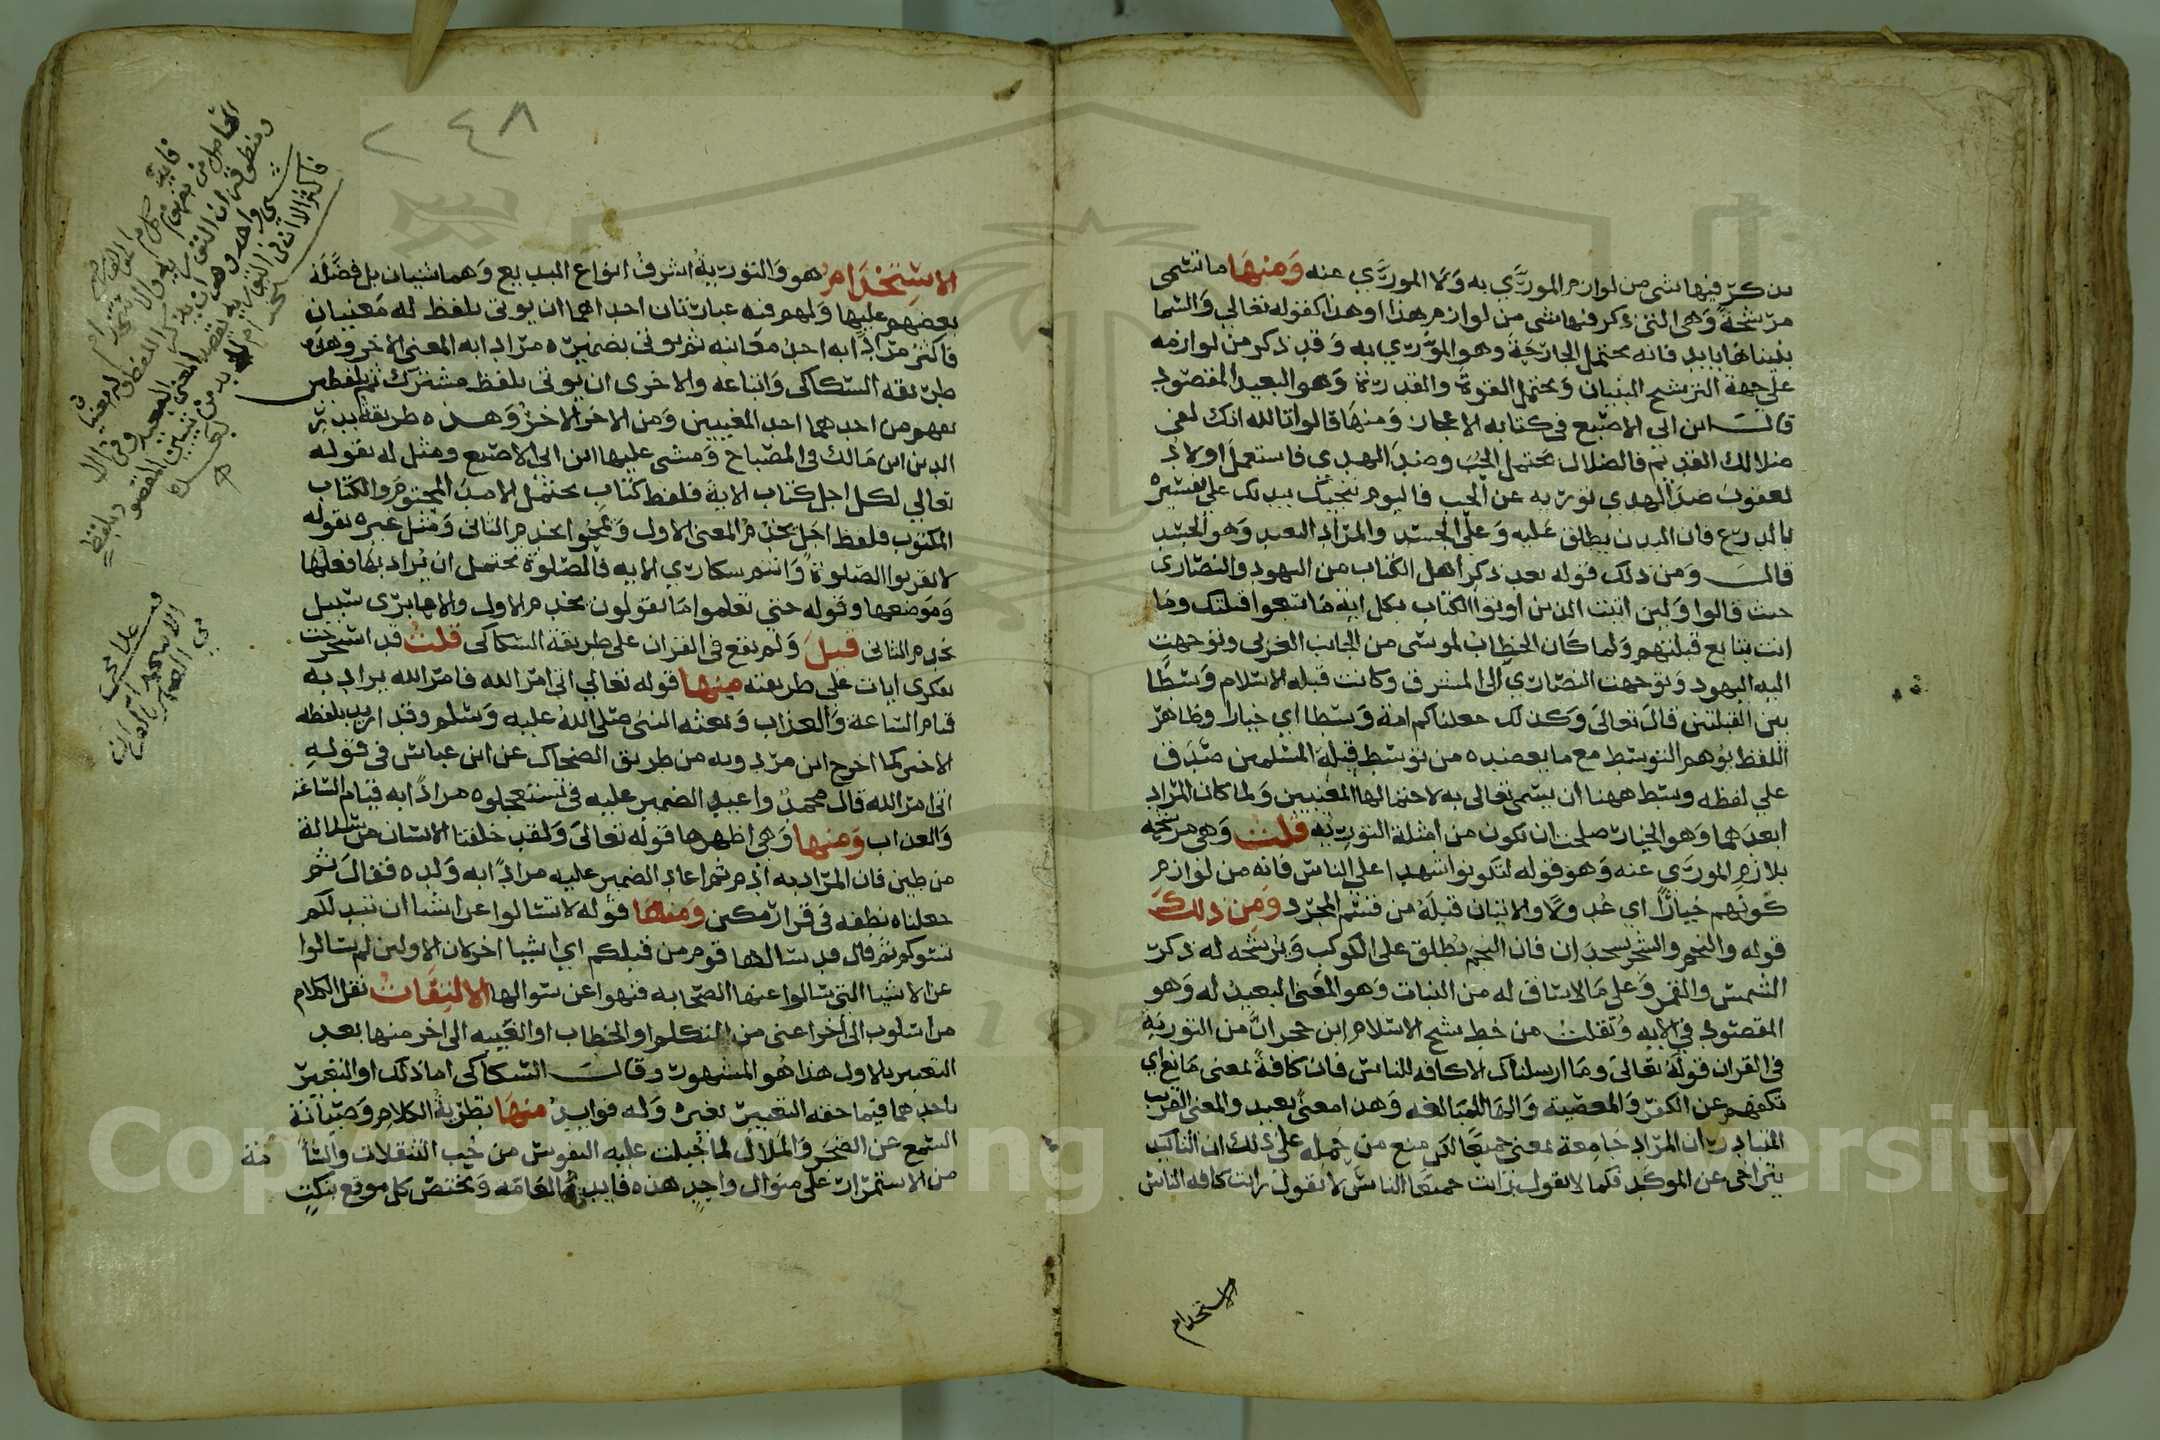 يذكر فيها شي من لوازم المورَّي به وَلا المورَّي عنه وَمنهَا ما تسمى
مرشحة وَهي التي ذكر فيها شي من لوازم هذا او هذا كقوله تعالي وَالسما
بنيناها بايد فانه يحتمل الجارحة وهو المورّي به وَقد ذكر من لوازمه
علي جهة الترشح البنيان وَيحتمل القوة والقدرة وَهو البعيد المقصود
قالـ ابن ابي الاصبع في كتابه الاعجاز وَمنهَا قالوا تالله انك لفي
ضلالك القديم فالضلال يحتمل الحُبَ وضد الهدي فاستعمل اولاد
يعقوب ضد الهدي تورية عن الحب فاليوم ننجيك ببدنك علي تفسيره
بالدرع فان البدن يطلق عليه وَعلي الجسد والمراد البعيد وَهو الجسد
قالـ وَمن ذلك قوله بعد ذكر اهل الكتاب من اليهود والنصارى
حيث قالوا وَلين اتيت الذين اوتوا الكتاب بكل اية مَا تبعوا قبلتك ومَا
انت بتابع قبلتهم وَلما كان الخطاب لموسى من الجانب الغربي وتوجهت
اليه اليهود وَتوجهت النصارى الى المشرق وكانت قبلة الاسلام وَسَطا
بين القبلتين قال تعالى وَكذلك جعلناكم امة وَسطا اي خيارا وظاهر
اللفظ يوهم التوسط مع ما يعضده من توسط قبلة المسلمين صَدَق
علي لفظة وسط ههنا ان يسمى تعالى به لاحتمالها المعنيين وَلما كان المراد
ابعدهما وَهو الخيار صلحت ان تكون من امثلة التورية قلت وَهي مرشحه
بلازم المورَّي عنه وَهو قوله لتكونوا شهدا على الناس فانه من لوازم
كونهم خيارًا اي عدولا والاتيان قبله من قسم المجرد وَمن ذلك
قوله والنجم والشجر يسجدان فان النجم يطلق على الكوكب وَيرشحه له ذكر
الشمس والقمر وَعلي مَا لا ساق له من النبات وَهو المعنى البعيد له وَهو
المقصود في الايه وَنقلت من خط شيخ الاسلام ابن حجر انّ من التورية
في القران قوله تعالى وما ارسلناك الا كافه للناس فان كافة لمعنى مَانع اي
تكفهم عن الكفر وَالمعصية وَالها للمبالغه وَهذا معنًى بعيد والمعنى القريب
المتبادر ان المراد جَامعة لمعنى جميعًا لكن منع من حمله على ذلك ان التاكيد
يتراخى عن الموكد فكما لا تقول رايت جميعًا الناس لا تقول رايت كافه الناس
الاستخدام
٢٤٨
الاسْتِخْدَامُ هو وَالتورية اشرف انواع البديع وَهما شيان بل فضّله
بعضهم عليها وَلهم فيه عبارتان احداهما ان يوتى بلفظ له معنيان
فاكثر مرّادا به احد معانيه ثم يوتى بضميره مرادا به المعنى الاخر وهذه
طريقه السّكاكى وَاتباعه والاخرى ان يوتى بلفظ مشترك ثم بلفظين
يفهم من احدهما احد المعنيين وَمن الاخر الاخر وَهذه طريقة بدر
الدين ابن مَالك فى المصباح وَمشى عليها ابن ابى الاصبع ومثل له بقوله
تعالي لكل اجل كتاب الاية فلفظ كتاب يحتمل الامد المحتوم والكتاب
المكتوب فلفظ اجل يخدم المعنى الاول وَيمحوا يخدم الثانى وَمثل غيره بقوله
لا تقربوا الصلوة وَانتم سكارى الايه فالصلوة يحتمل ان يُراد بهَا فعلها
وَموَضعها وقوله حتى تعلموا مَا تقولون يخدم الاول والا عابرى سبيل
يخدم الثانى قيل وَلم يقع فى القران على طريقة السكاكى قلتُ قد استخرجت
بفكرى ايات على طريقته منها قوله تعالي اتى امر الله فامر الله يراد به
قيام السّاعة وَالعذاب وَبعثه النبى صلى الله عليه وَسلم وقد اريد بلفظه
الاخير كما اخرج ابن مردويه من طريق الضحاك عن ابن عباس فى قوله
اتى امر الله قال محمد واعيد الضمير عليه فى تستعجلوه مرادًا به قيام الساعة
وَالعذاب وَمنها وَهى اظهرها قوله تعالى وَلقد خلقنا الانسان من سلالة
من طين فان المراد به ادم ثم اعاد الضمير عليه مرادًا به وَلده فقال ثم
جعلناه نطفة فى قرار مكين وَمنهَا قوله لا تسالوا عن اشيا ان تبد لكم
تسوكم ثم قال قد سالها قوم من قبلكم اي اشيا اخر لان الاولين لم يسالوا
عن الاشيا التى سالوا عنها الصّحابه فنهوا عن سوالها الالتِفَاتُ نقل الكلام
من اسلوب الى اخر اعنى من التكلم او الخطاب او الغيبه الى اخر منها بعد
التعبير بالاول هذا هو المشهور وقالـ السّكاكى اما ذلك او التعبير
باحدهما فيما حقه التعبير بغيره وَله فوايد منهَا تطرية الكلام وَصيَانة
السمع عن الضجر وَالملال لما جُبلت عليه النفوس من حُب التنقلات وَالسآمة
من الاستمرار على منوال واحد هذه فايدته العَامّه وَيختص كل موقع بنكتٍ